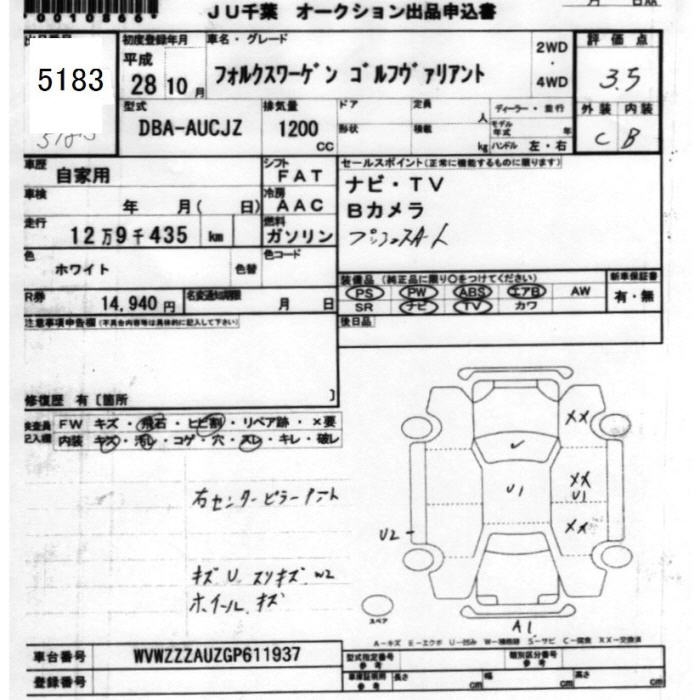 00108661
JU千葉 オークション出品申込書
月 日
初度登録年月 車名・グレード 2WD ・ 4WD 評価点
5183 平成 28 10月 フォルクスワーゲン ゴルフヴァリアント 3.5
型式 排気量 ドア 定員 人 ディーラー・並行 外装 内装
DBA-AUCJZ 1200 CC 形状 積載 kg モデル年式 年 ハンドル 左・右 C B
車歴 自家用 シフト FAT セールスポイント(正常に機能するものに限ります)
車検 年 月( 日) 冷房 AAC ナビ・TV
Bカメラ
走行 12万9千435 km 燃料 ガソリン プッシュスタート
色 ホワイト 色替 色コード
装備品 (純正品に限り○をつけてください) 新車保証書
R券 14,940円 名変通知期限 月 日 PS PW ABS エアB AW 有・無
SR ナビ TV カワ
注意事項申告欄(不具合内容等は具体的に記入して下さい) 後日品
修復歴 有〔箇所 〕
検査員記入欄 FW キズ・飛石・ヒビ割・リペア跡・×要
内装 キズ・汚レ・コゲ・穴・スレ・キレ・破レ
XX
右センターピラー
U1
XX
U1
XX
U2
キズ U スリキズ W2
ホイール キズ
スペア
A1
A-キズ E-エクボ U-凹み W-補修跡 S-サビ C-腐食 XX-交換済
車台番号 WVWZZZAUZGP611937 型式指定番号 参考 類別区分番号 参考
登録番号 車庫証明用 参考 長さ cm 幅 cm 高さ cm